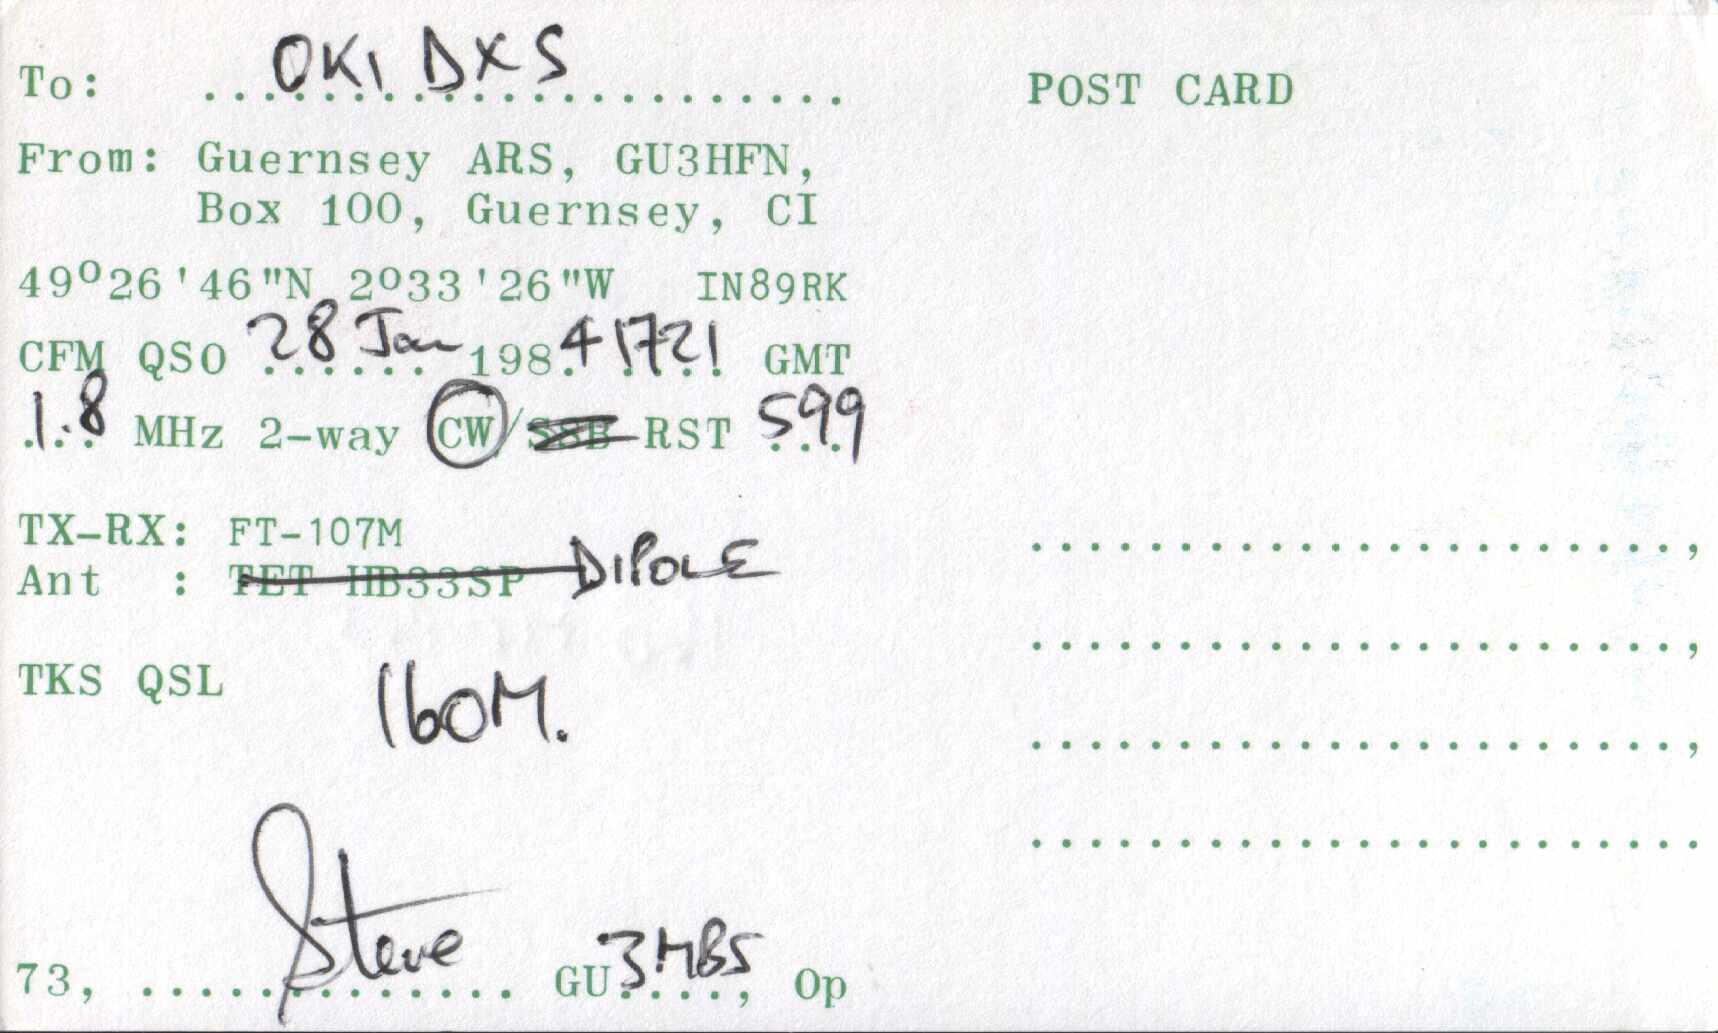 To: OK1 DXS
POST CARD
From: Guernsey ARS, GU3HFN,
Box 100, Guernsey, CI
49º26'46"N 2º33'26"W IN89RK
CFM QSO 28 Jan 1984 1721 GMT
1.8 MHz 2-way CW/SSB RST 599
TX-RX: FT-107M
Ant : TET HB33SP DIPOLE
TKS QSL 160M.
73, Steve GU3MBS, Op